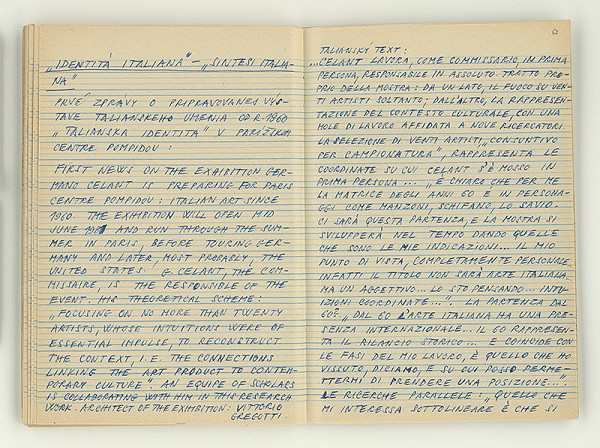 „IDENTITÀ ITALIANA" – „SINTESI ITALIA-
NA"
PRVÉ ZPRÁVY O PRIPRAVOVANEJ VÝS-
TAVE TALIANSKEHO UMENIA OD R. 1960
„TALIANSKA IDENTITA" V PARÍŽSKOM
CENTRE POMPIDOU :
FIRST NEWS ON THE EXHIBITION GER-
MANO CELANT IS PREPARING FOR PARIS
CENTRE POMPIDOU : ITALIAN ART SINCE
1960. THE EXHIBITION WILL OPEN MID
JUNE 1981 AND RUN THROUGH THE SUM-
MER IN PARIS, BEFORE TOURING GER-
MANY AND LATER, MOST PROBABLY, THE
UNITED STATES. G. CELANT, THE COM-
MISSAIRE, IS THE RESPONSIBLE OF THE
EVENT. HIS THEORETICAL SCHEME :
„FOCUSING ON NO MORE THAN TWENTY
ARTISTS, WHOSE INTUITIONS WERE OF
ESSENTIAL IMPULSE, TO RECONSTRUCT
THE CONTEXT, I.E. THE CONNECTIONS
LINKING THE ART PRODUCT TO CONTEM-
PORARY CULTURE". AN EQUIPE OF SCHOLARS
IS COLLABORATING WITH HIM IN THIS RESEARCH
WORK. ARCHITECT OF THE EXHIBITION : VITTORIO
GREGOTTI.
TALIANSKÝ TEXT :
...CELANT LAVORA, COME COMMISSARIO, IN PRIMA
PERSONA, RESPONSABILE IN ASSOLUTO. TRATTO PRO-
PRIO DELLA MOSTRA : DA UN LATO, IL FUOCO SU VEN-
TI ARTISTI SOLTANTO; DALL'ALTRO, LA RAPPRESEN-
TAZIONE DEL CONTESTO CULTURALE, CON UNA
MOLE DI LAVORO AFFIDATA A NOVE RICERCATORI.
LA SELEZIONE DI VENTI ARTISTI, „CONSUNTIVO
PER CAMPIONATURA", RAPPRESENTA LE
COORDINATE SU CUI CELANT S'È MOSSO IN
PRIMA PERSONA ... „È CHIARO CHE PER ME
LA MATRICE DEGLI ANNI 60 È IN PERSONA-
GGI COME MANZONI, SCHIFANO, LO SAVIO.
CI SARÀ QUESTA PARTENZA, E LA MOSTRA SI
SVILUPPERÀ NEL TEMPO DANDO QUELLE
CHE SONO LE MIE INDICAZIONI ... IL MIO
PUNTO DI VISTA, COMPLETAMENTE PERSONALE,
INFATTI IL TITOLO NON SARÀ ARTE ITALIANA,
MA UN AGGETTIVO ... LO STO PENSANDO ... INTU-
IZIONI COORDINATE ...". LA PARTENZA DAL
60: „DAL 60 L'ARTE ITALIANA HA UNA PRE-
SENZA INTERNAZIONALE ... IL 60 RAPPRESEN-
TA IL RILANCIO STORICO ... E COINCIDE CON
LE FASI DEL MIO LAVORO, È QUELLO CHE HO
VISSUTO, DICIAMO, E SU CUI POSSO PERME-
TTERMI DI PRENDERE UNA POSIZIONE ...".
LE RICERCHE PARALLELE : „QUELLO CHE
MI INTERESSA SOTTOLINEARE È CHE SI